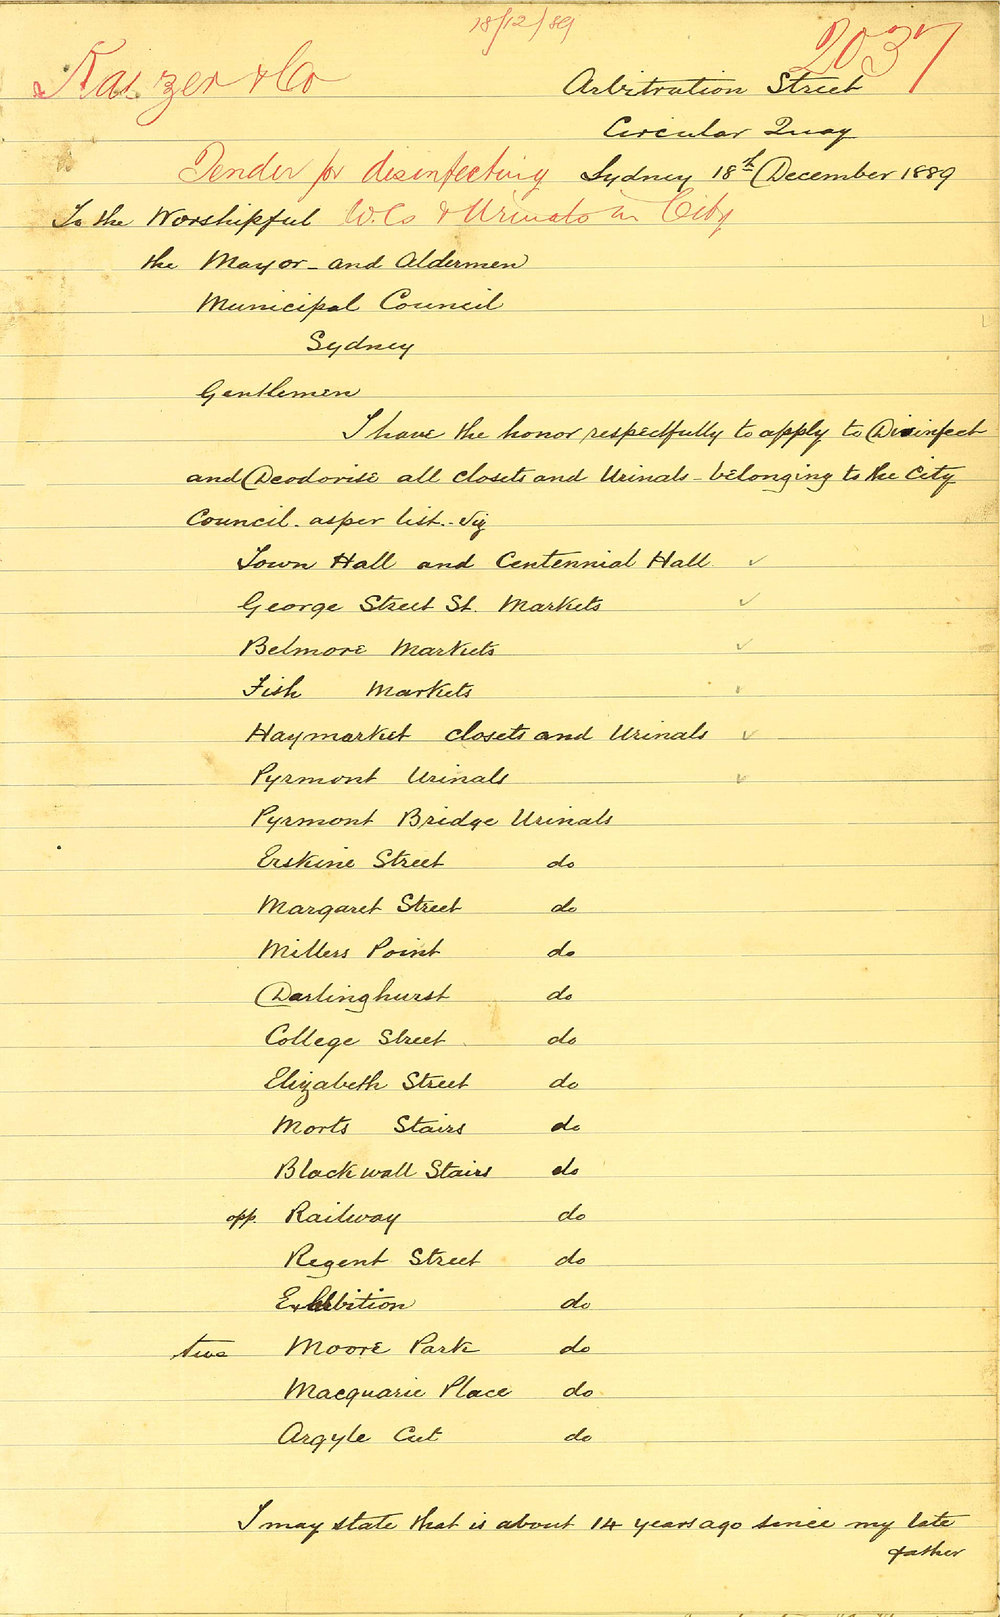 18/12/89
2037
Kaezer & Co
Arbitration Street
Circular Quay
Tender for disinfecting
Sydney 18th December 1889
W.Cs & Urinals in City
To the Worshipful
the Mayor - and Aldermen
Municipal Council
Sydney
Gentlemen
I have the honor respectfully to apply to Disinfect
and Deodorise all closets and Urinals - belonging to the City
Council. as per list. - Viz
Town Hall and Centennial Hall ✓
George Street St. Markets ✓
Belmore Markets ✓
Fish Markets ✓
Haymarket closets and Urinals ✓
Pyrmont Urinals ✓
Pyrmont Bridge Urinals
Erskine Street do
Margaret Street do
Millers Point do
Darlinghurst do
College Street do
Elizabeth Street do
Morts Stairs do
Blackwall Stairs do
opp. Railway do
Regent Street do
Exhibition do
two Moore Park do
Macquarie Place do
Argyle Cut do
I may state that is about 14 years ago since my late
father